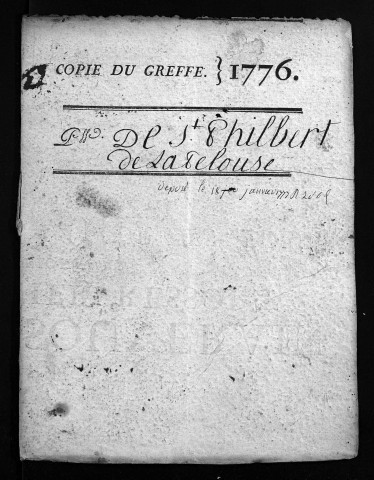 COPIE DU GREFFE. } 1776.
De St Philbert
de La Pelouse
Deposé le 18 janvier 1777